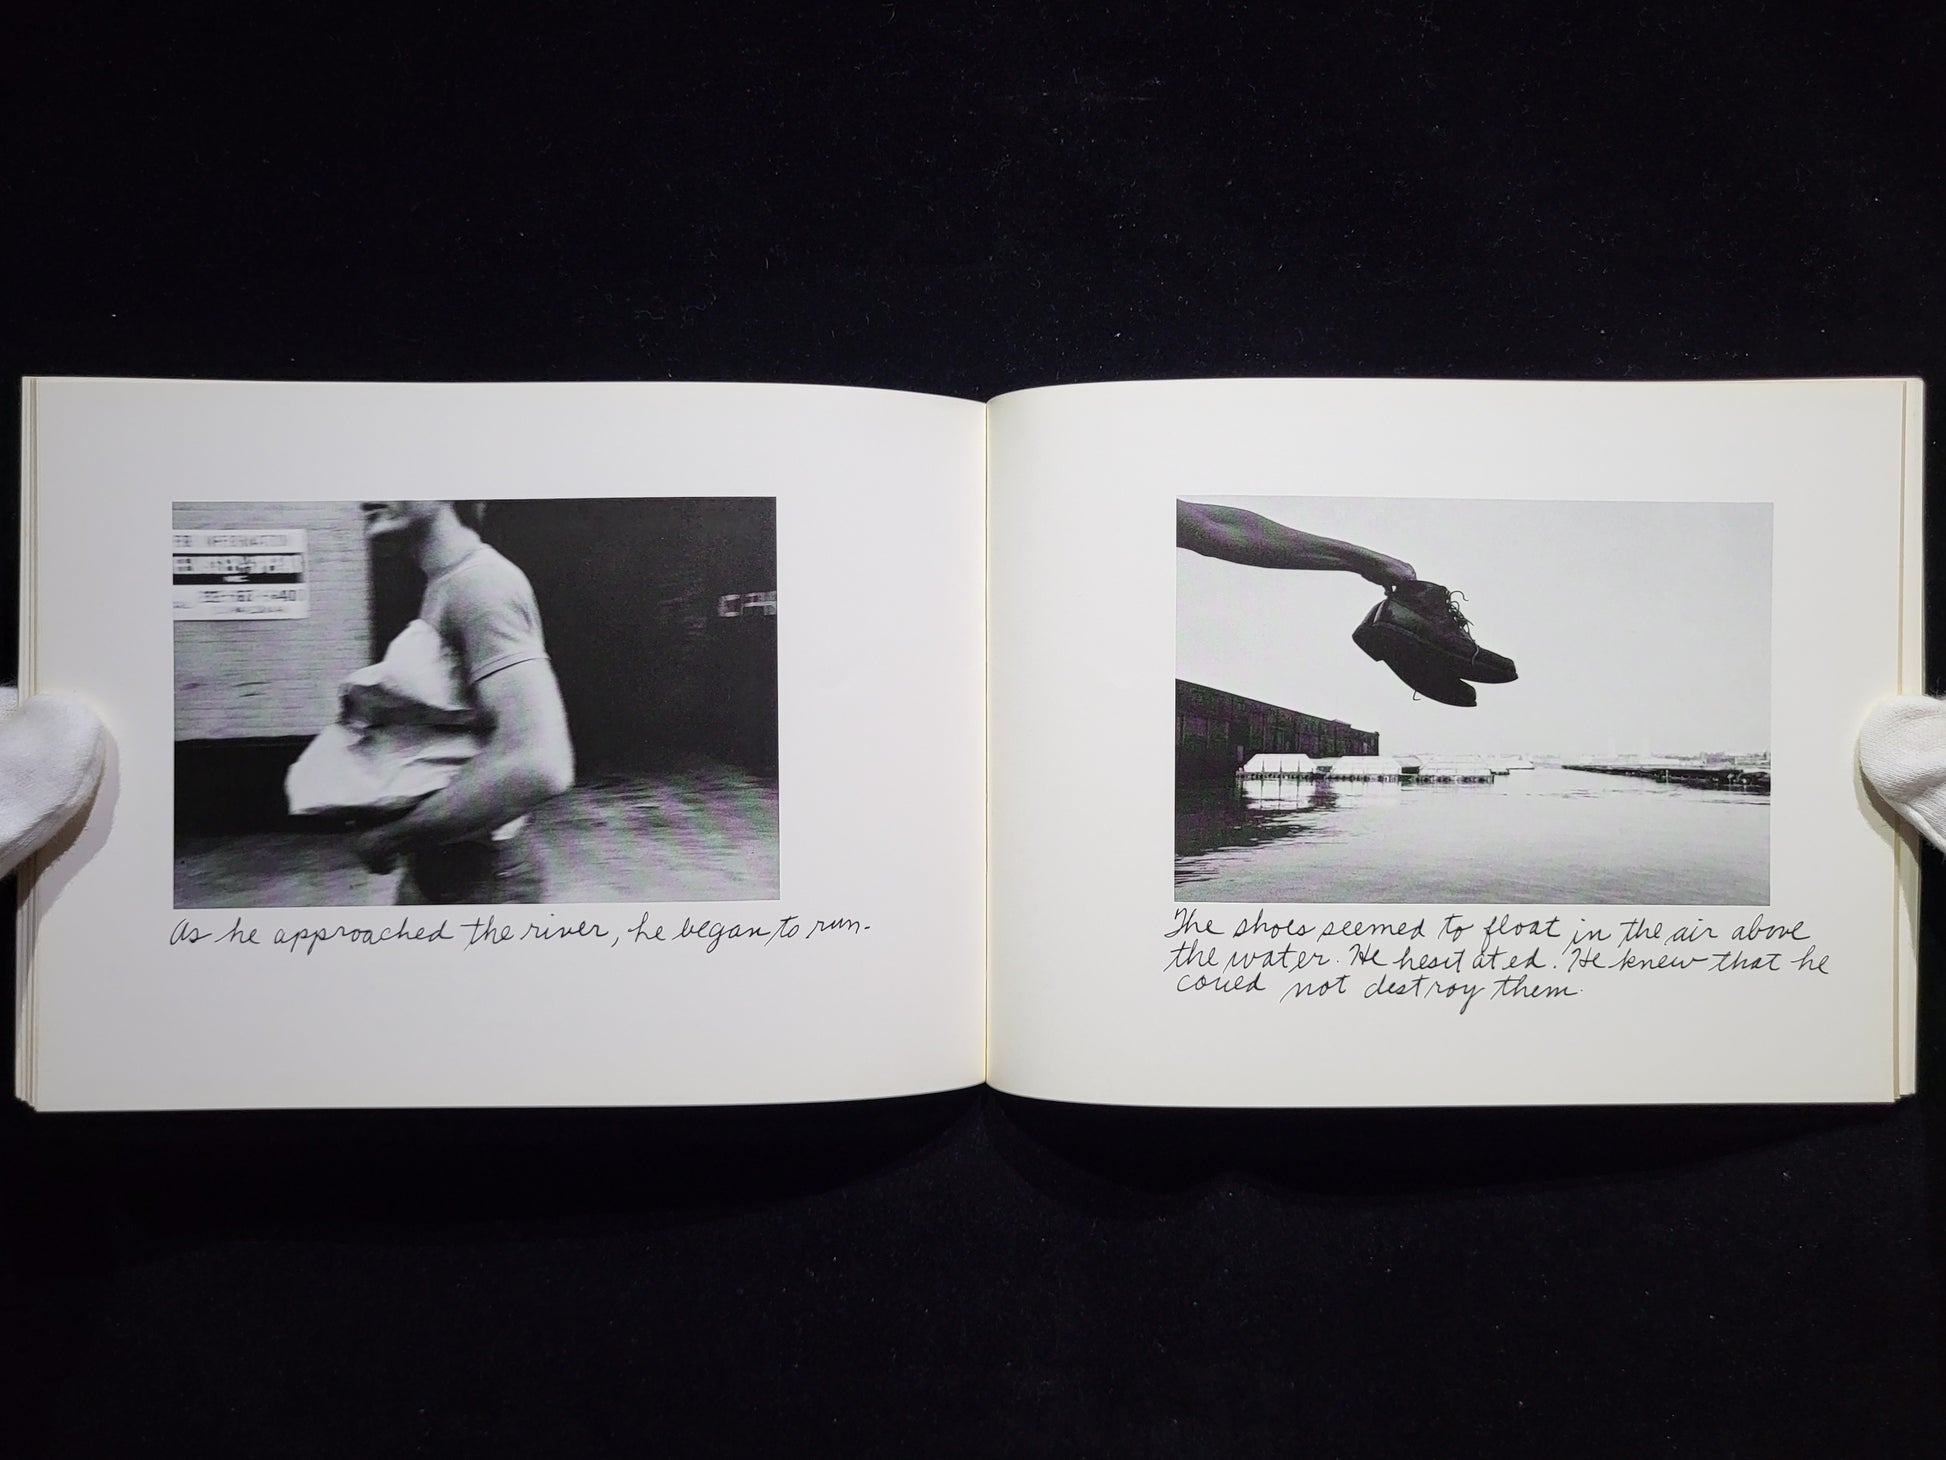 As he approached the river, he began to run.
The shoes seemed to float in the air above
the water. He hesitated. He knew that he
could not destroy them.